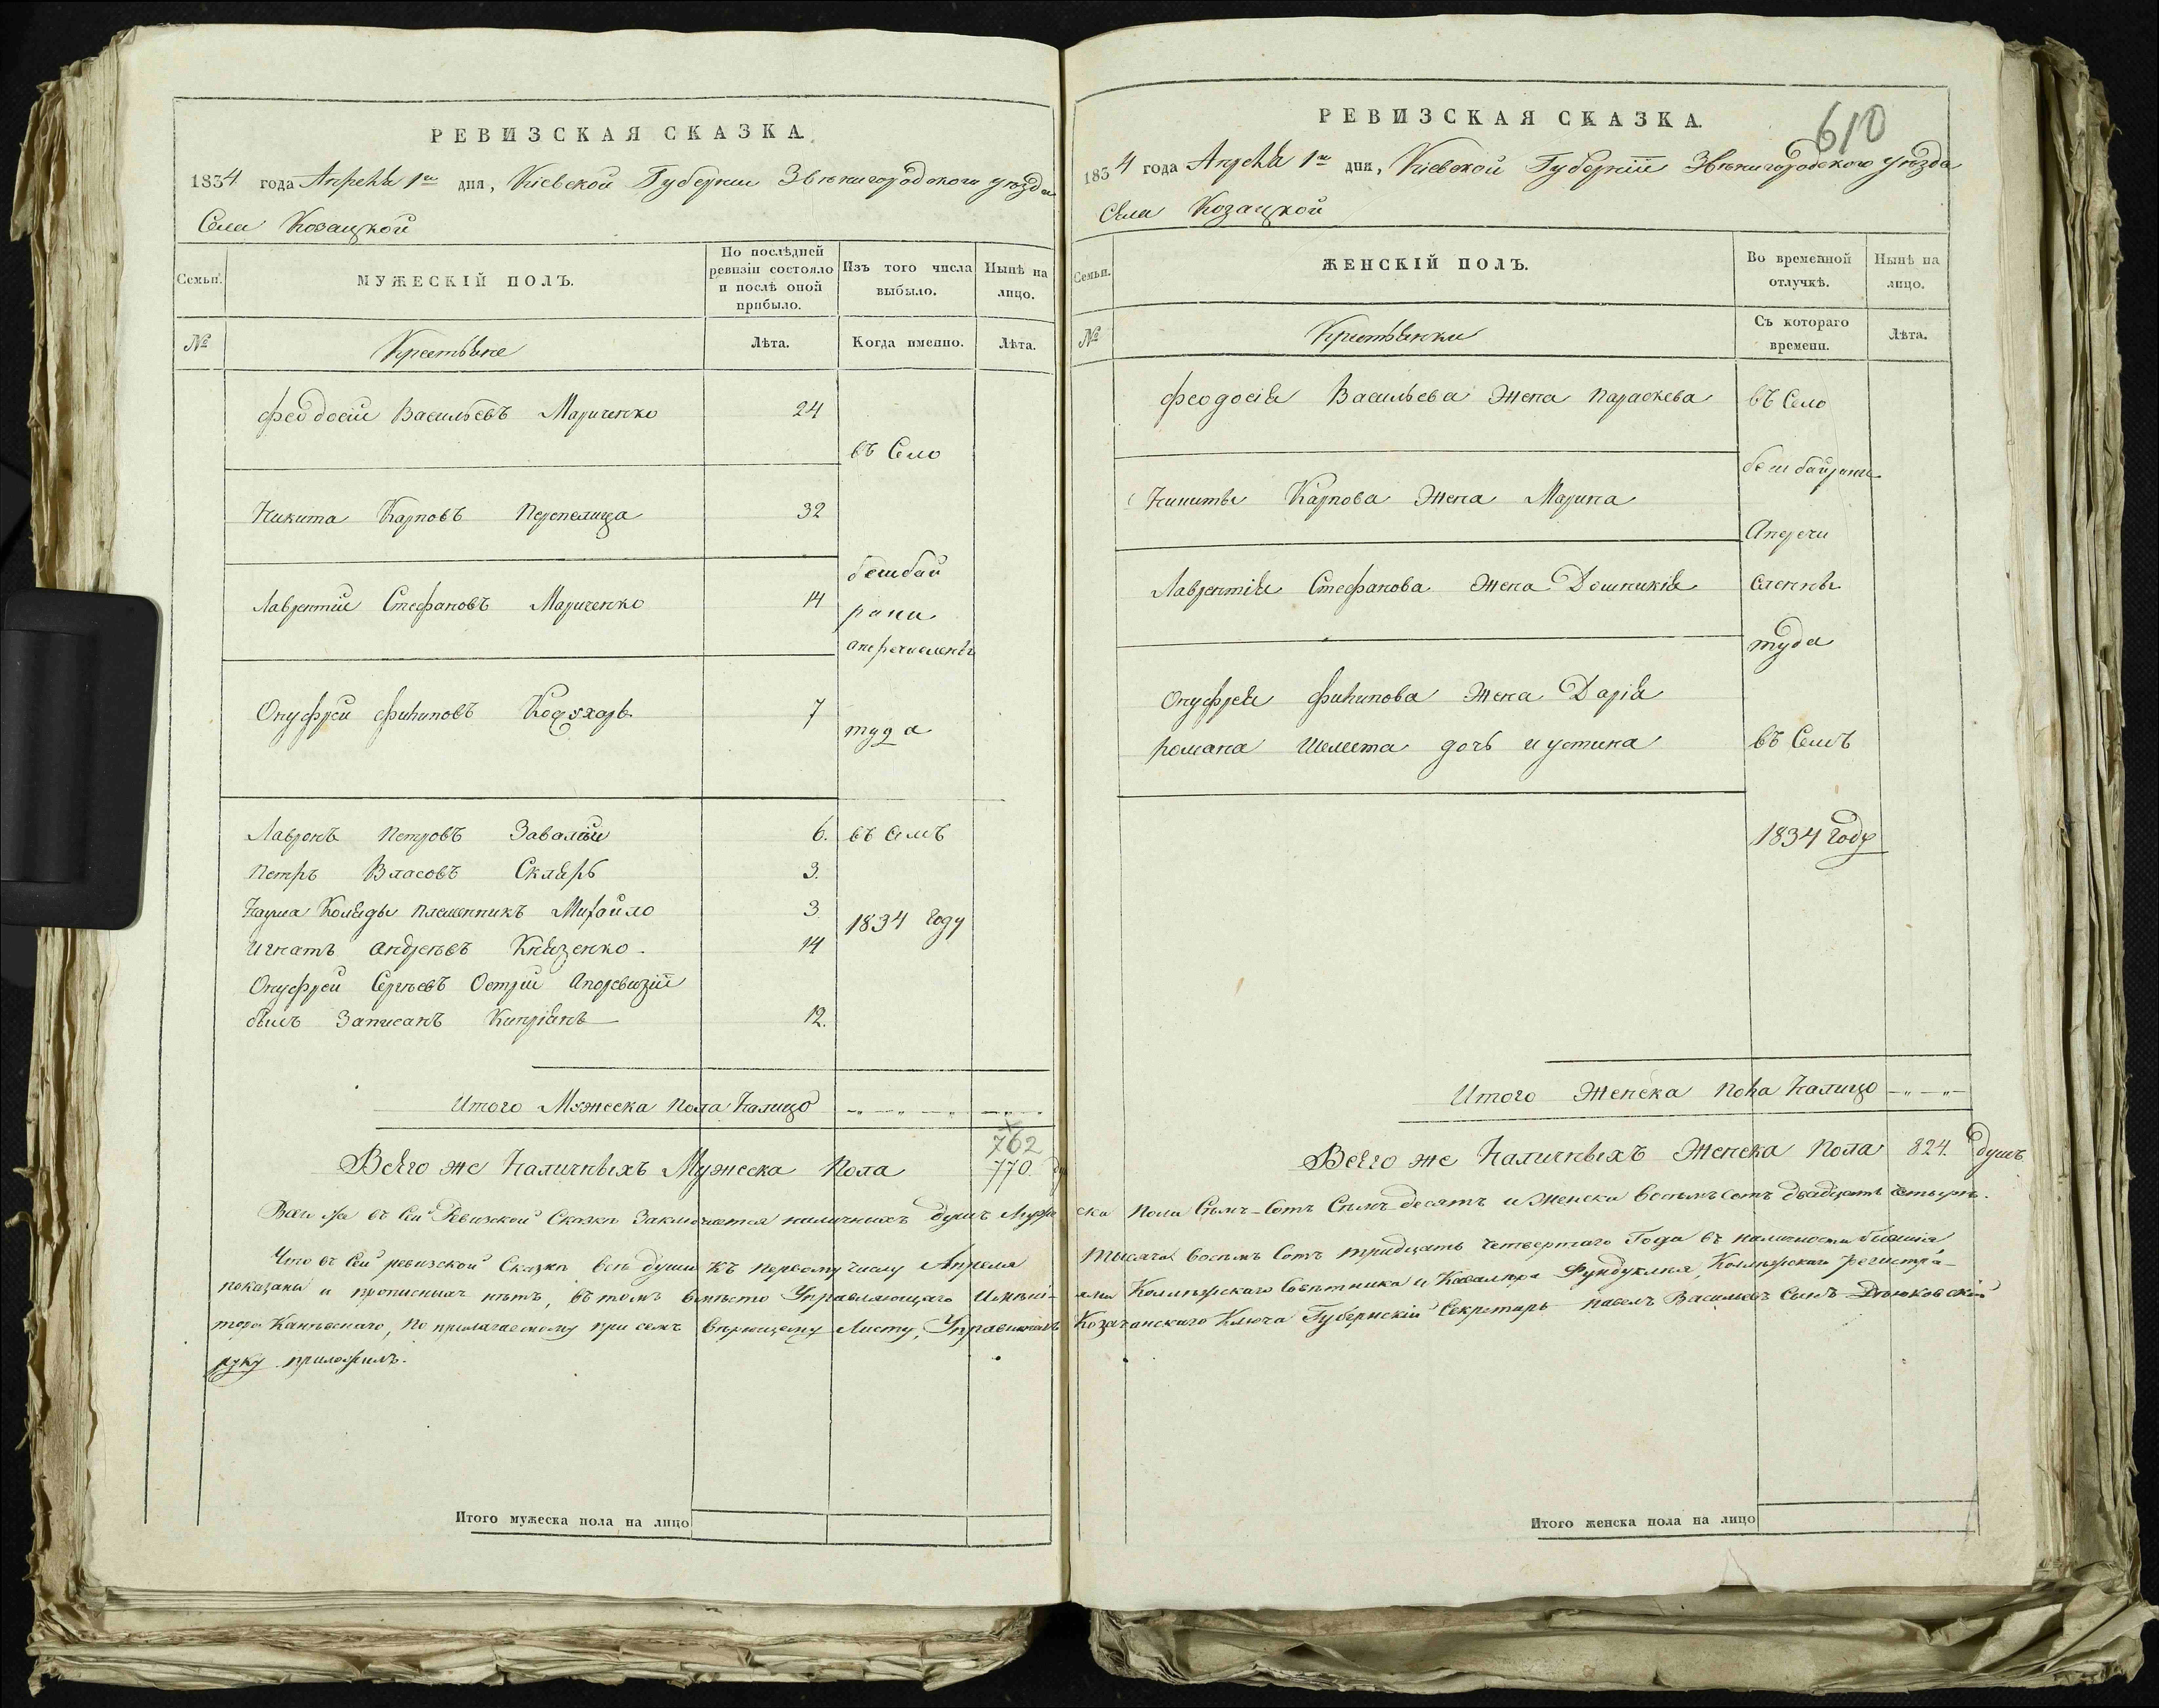 РЕВИЗСКАЯ СКАЗКА.
1834 года Апреля 1го дня, Кіевской Губерніи Звѣнигородского уѣзда
Села Козацкой
Семьи.
МУЖЕСКІЙ ПОЛЪ.
По послѣдней ревизіи состояло и послѣ оной прибыло.
Изъ того числа выбыло.
Нынѣ на лицо.
№
Крестьяне
Лѣта.
Когда именно.
Лѣта.
Феодосій Васильевъ Мариченко 24
въ Село
Никита Карповъ Перепелица 32
бешбай
Лаврентій Стефановъ Мариченко 14
рани
Онуфрей Филиповъ Кожухарь 7
туда
Лавронъ Петровъ Завалій 6. въ семъ
Петръ Власовъ Скляръ 3.
Наума Коляды племенникъ Михайло 3
1834 году
Игнатъ Андреевъ Князенко 14
Онуфрей Сергѣевъ Острій Апоревизіи
былъ Записанъ Кипріянъ 12.
Итого Мужеска пола Налицо
762
Всего же Наличныхъ Мужеска Пола 770. ду
Всего въ Сей Ревизской Сказки Заключается наличныхъ душъ Муже
Что въ Сей ревизской Сказки всѣ души къ первому числу Апреля
показаны и прописныхъ нѣтъ, въ томъ вмѣсто Управляющаго Имѣні-
тора Канѣвскаго, По прилагаемому при семъ вѣрющему Листу, Управляющій
руку приложилъ.
Итого мужеска пола на лицо
610
РЕВИЗСКАЯ СКАЗКА.
1834 года Апреля 1го дня, Кіевской Губерніи Звѣнигородского уѣзда
Села Козацкой
Семьи.
ЖЕНСКІЙ ПОЛЪ.
Во временной отлучкѣ.
Нынѣ на лицо.
№
Крестьянки
Съ котораго времени.
Лѣта.
Феодосія Васильева Жена Параскева въ Село
бешбайраки
Никиты Карпова Жена Марина
Апречи
Лаврентія Стефанова Жена Домникія сленны
туда
Онуфрея Филипова Жена Дарія
Романа Шелеста дочь Иустина въ Семъ
1834 году
Итого Женска Пола Налицо
Всего же Наличныхъ Женска Пола 824. душъ
ска Пола Семъ-Сотъ Семъ-десятъ и Женска восемъ Сотъ двадцать четыре.
тысяча восемъ Сотъ тридцать Четвертаго Года въ наличности бывшія
ями Коллежскаго Совѣтника и Кавалера Фундуклея, Коллежскаго регистра-
Козачанскаго Ключа Губернскій Секретарь Павелъ Васильевъ Сынъ
Итого женска пола на лицо